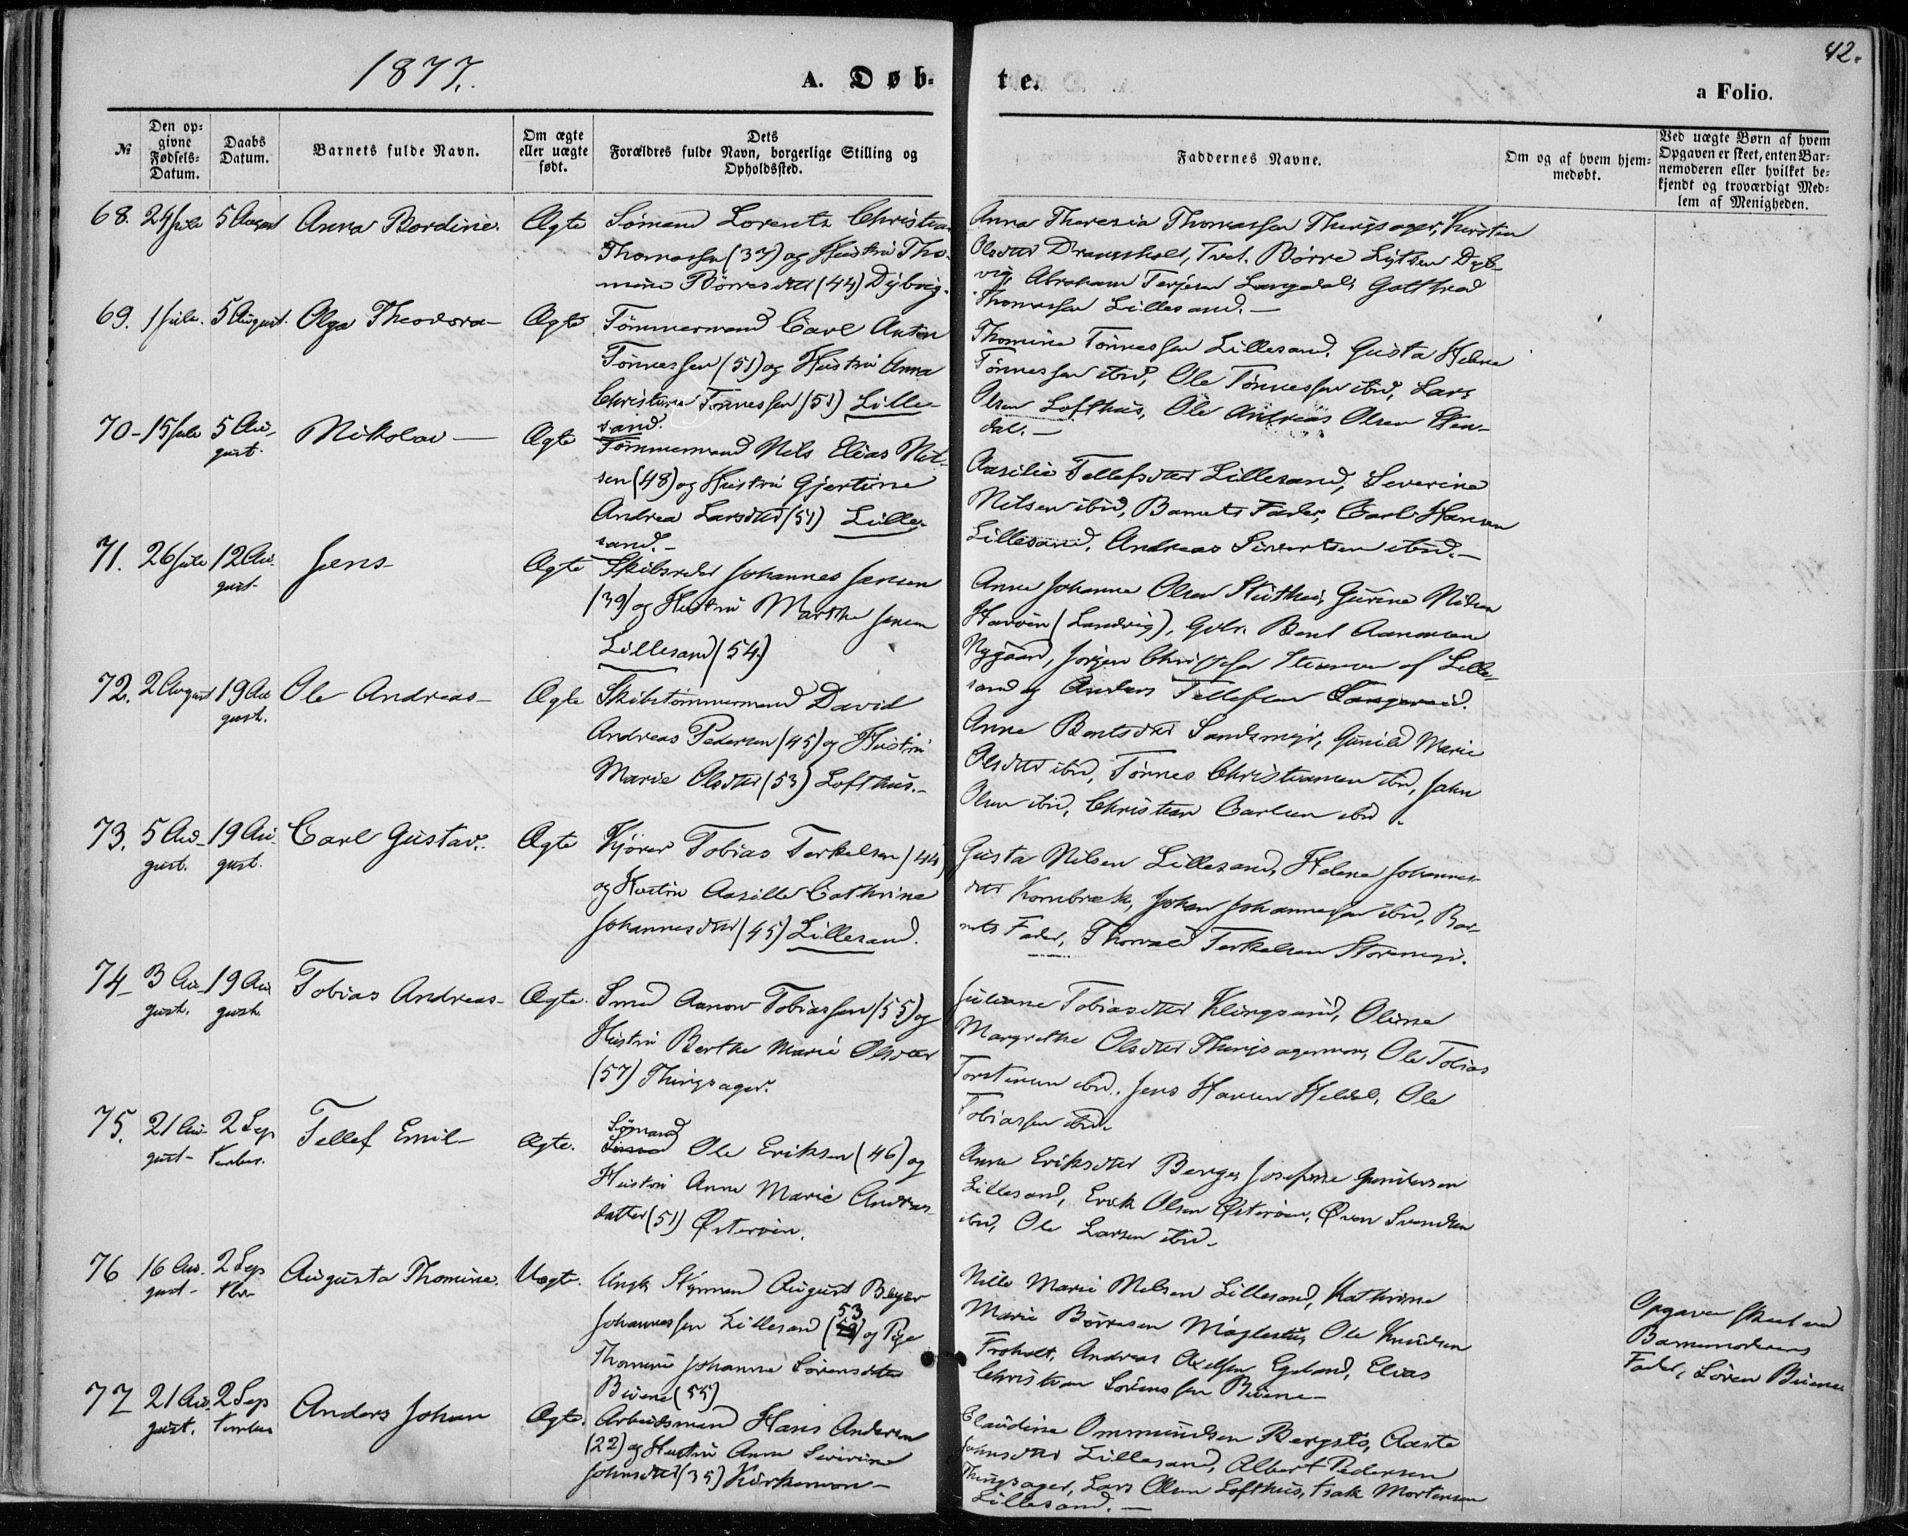 1877.
A. Døb-
te.
a Folio.
42.
№
Den op-
givne
Fødsels-
Datum.
Daabs
Datum.
Barnets fulde Navn.
Om ægte
eller uægte
født.
Dets
Forældres fulde Navn, borgerlige Stilling og
Opholdssted.
Faddernes Navne.
Om og af hvem hjem-
medøbt.
Ved uægte Børn af hvem
Opgaven er skeet, enten Bar-
nemoderen eller hvilket be-
kjendt og troværdigt Med-
lem af Menigheden.
68. 24 Juli 5 August Anna Bordine. Ægte Sømand Lorents Christian
Thomassen (37) og Hustru Tho-
mine Børresdtr (44) Dybvig.
Anna Theresia Thomassen Thingsager, Kirsten
Olsdtr Drangsholt, Tvet. Børre Dyb-
vig, Abraham Terjesen Langedal, Gotthard
Thomassen Lillesand.—
69. 1 Juli. 5 August. Olga Theodora— Ægte Tømmermand Carl Anton
Tønnessen (51) og Hustru Anna
Christine Tønnessen (51) Lille-
sand.
Thomine Tønnessen Lillesand, Gusta Helene
Tønnessen ibid, Ole Tønnessen ibid, Lars
Olsen Lofthus, Ole Andreas Olsen Sten-
dal.—
70— 15 Juli 5 Au-
gust. Nikolai— Ægte Tømmermand Nils Elias Nil-
sen (48) og Hustru Gjertine
Andrea Larsdtr (51) Lille-
sand.—
Aasilie Tellefsdtr Lillesand, Severine
Nilsen ibid, Barnets Fader, Carl Hansen
Lillesand, Andreas Sivertsen ibid.—
71. 26 Juli 12 Au-
gust. Jens Ægte Skibsreder Johannes Jensen
(39) og Hustru Marthe Jensen
Lillesand (54.)
Anne Johanne Olsen Gurine Nilsen
(Landvig), Gdbr. Bent Aanonsen
Nygaard, Jørgen Christopher af Lille-
sand og Anders Tellefsen
72. 2 August 19 Au-
gust. Ole Andreas— Ægte Skibstømmermand David
Andreas Pedersen (45) og Hustru
Marie Olsdtr (53) Lofthus.—
Anne Bentsdtr Sandsmyr, Gunild Marie
Olsdtr ibid, Tønnes Christiansen ibid, John
Olsen ibid, Christian Carlsen ibid.
73. 5 Au-
gust. 19 Au-
gust. Carl Gustav. Ægte Kjører Tobias Terkelsen (44)
og Hustru Aasille Cathrine
Johannesdtr (45) Lillesand.
Gusta Nilsen Lillesand, Helene Johannes-
dtr Kornbrek, Johan Johannessen ibid, Bar-
nets Fader, Thorvald Terkelsen Storemyr.
74— 3 Au-
gust. 19 Au-
gust. Tobias Andreas— Ægte. Smed Aanon Tobiassen (55) og
Hustru Berthe Marie Olsdtr
(57) Thingsager.
Juliane Tobiasdtr Klingsund, Oline
Margrethe Olsdtr Thingsagermoen, Ole Tobias
Torstensen ibid, Jens Hansen Heldal, Ole
Tobiassen ibid.
75. 21 Au-
gust— 2 Sep
tember. Tellef Emil— Ægte. Sømand
Ole Eriksen (46) og
Hustru Anne Marie Andreas-
datter (51) Østerøen.
Anne Eriksdtr Berge, Josefine Gundersen
Lillesand, Erik Olsen Østerøen, Øven Svendsen
ibid, Ole Larsen ibid.
76 16 Au-
gust— 2 Sep
tbr Augusta Thomine. Uægte. Ungk Styrmand August Beyer
Johannessen Lillesand (53) og Pige
Thomine Johanne Sørensdtr
Buene (55)
Nille Marie Nielsen Lillesand, Kathrine
Marie Børresen Møglestu, Ole Knudsen
Froholt, Andreas Axelsen Egeland, Elias
Christian Sørenssen Buene—
Opgaven skeet ved
Barnemoderens
Fader, Søren Buene
77 21 Au-
gust. 2 Sep
tember Anders Johan Ægte. Arbeidsmand Hans Andersen
(22) og Hustru Anne Severine
Johnsdtr (35) Kirkemoen—
Claudine Ommundsen Bergstø, Aaste
Johnsdtr Lillesand, Albert Pedersen
Thingsager, Lars Olsen Lofthus, Isak Mortensen
Lillesand.—